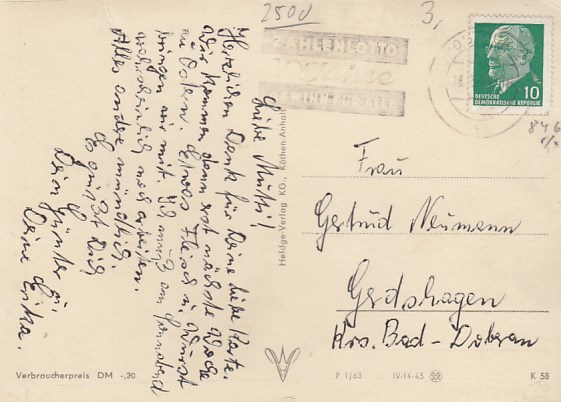 Liebe Mutti!
Herzlichen Dank für Deine liebe Karte.
Wir kommen dann erst nächste Woche
zu Ostern. Etwas Fleisch u. Wurst
bringen wir mit. Ich muß am Sonnabend
wahrscheinlich noch arbeiten.
Alles andere mündlich.
Es grüßt Dich
Dein Günter u.
Deine Erika.
Verbraucherpreis DM -,20
Heldge-Verlag KG., Köthen-Anhalt
2500
3,
ZAHLENLOTTO
GEWINN FÜR ALLE
10
DEUTSCHE
DEMOKRATISCHE REPUBLIK
846
Frau
Gertrud Neumann
Gerdshagen
Krs. Bad-Doberan
P 1/63 IV-14-45 K 58